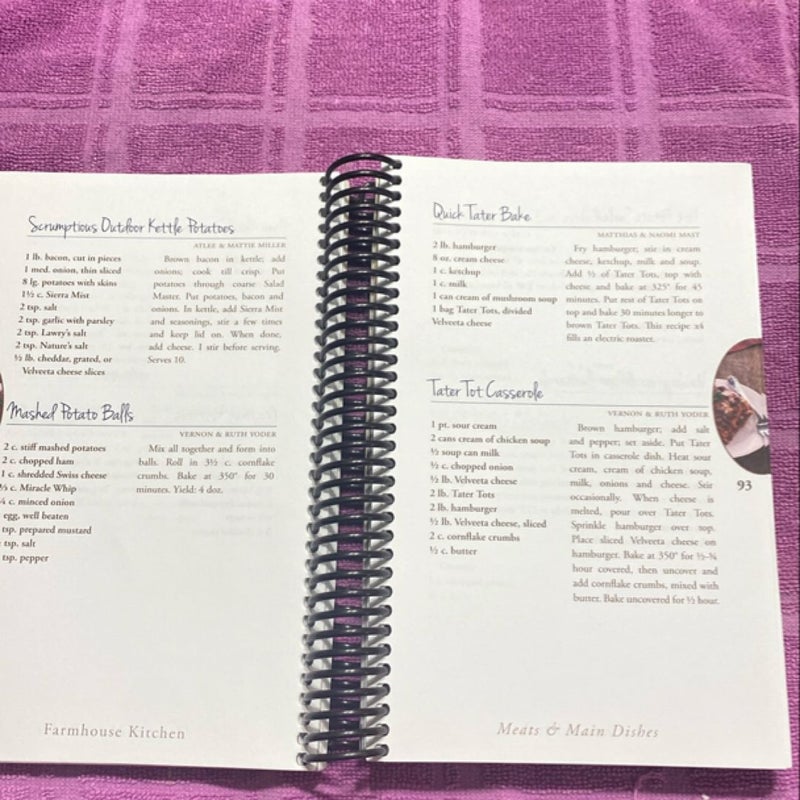 Scrumptious Outdoor Kettle Potatoes
ATLEE & MATTIE MILLER
1 lb. bacon, cut in pieces
1 med. onion, thin sliced
8 lg. potatoes with skins
1½ c. Sierra Mist
2 tsp. salt
2 tsp. garlic with parsley
2 tsp. Lawry's salt
2 tsp. Nature's salt
½ lb. cheddar, grated, or
Velveeta cheese slices
Brown bacon in kettle; add
onions; cook till crisp. Put
potatoes through coarse Salad
Master. Put potatoes, bacon and
onions. In kettle, add Sierra Mist
and seasonings, stir a few times
and keep lid on. When done,
add cheese. I stir before serving.
Serves 10.
Mashed Potato Balls
VERNON & RUTH YODER
2 c. stiff mashed potatoes
2 c. chopped ham
1 c. shredded Swiss cheese
c. Miracle Whip
c. minced onion
egg, well beaten
tsp. prepared mustard
tsp. salt
tsp. pepper
Mix all together and form into
balls. Roll in 3½ c. cornflake
crumbs. Bake at 350° for 30
minutes. Yield: 4 doz.
Farmhouse Kitchen
Quick Tater Bake
MATTHIAS & NAOMI MAST
2 lb. hamburger
8 oz. cream cheese
1 c. ketchup
1 c. milk
1 can cream of mushroom soup
1 bag Tater Tots, divided
Velveeta cheese
Fry hamburger; stir in cream
cheese, ketchup, milk and soup.
Add ½ of Tater Tots, top with
cheese and bake at 325° for 45
minutes. Put rest of Tater Tots on
top and bake 30 minutes longer to
brown Tater Tots. This recipe x4
fills an electric roaster.
Tater Tot Casserole
VERNON & RUTH YODER
1 pt. sour cream
2 cans cream of chicken soup
½ soup can milk
½ c. chopped onion
½ lb. Velveeta cheese
2 lb. Tater Tots
2 lb. hamburger
½ lb. Velveeta cheese, sliced
2 c. cornflake crumbs
½ c. butter
Brown hamburger; add salt
and pepper; set aside. Put Tater
Tots in casserole dish. Heat sour
cream, cream of chicken soup,
milk, onions and cheese. Stir
occasionally. When cheese is
melted, pour over Tater Tots.
Sprinkle hamburger over top.
Place sliced Velveeta cheese on
hamburger. Bake at 350° for ½-¾
hour covered, then uncover and
add cornflake crumbs, mixed with
butter. Bake uncovered for ½ hour.
93
Meats & Main Dishes